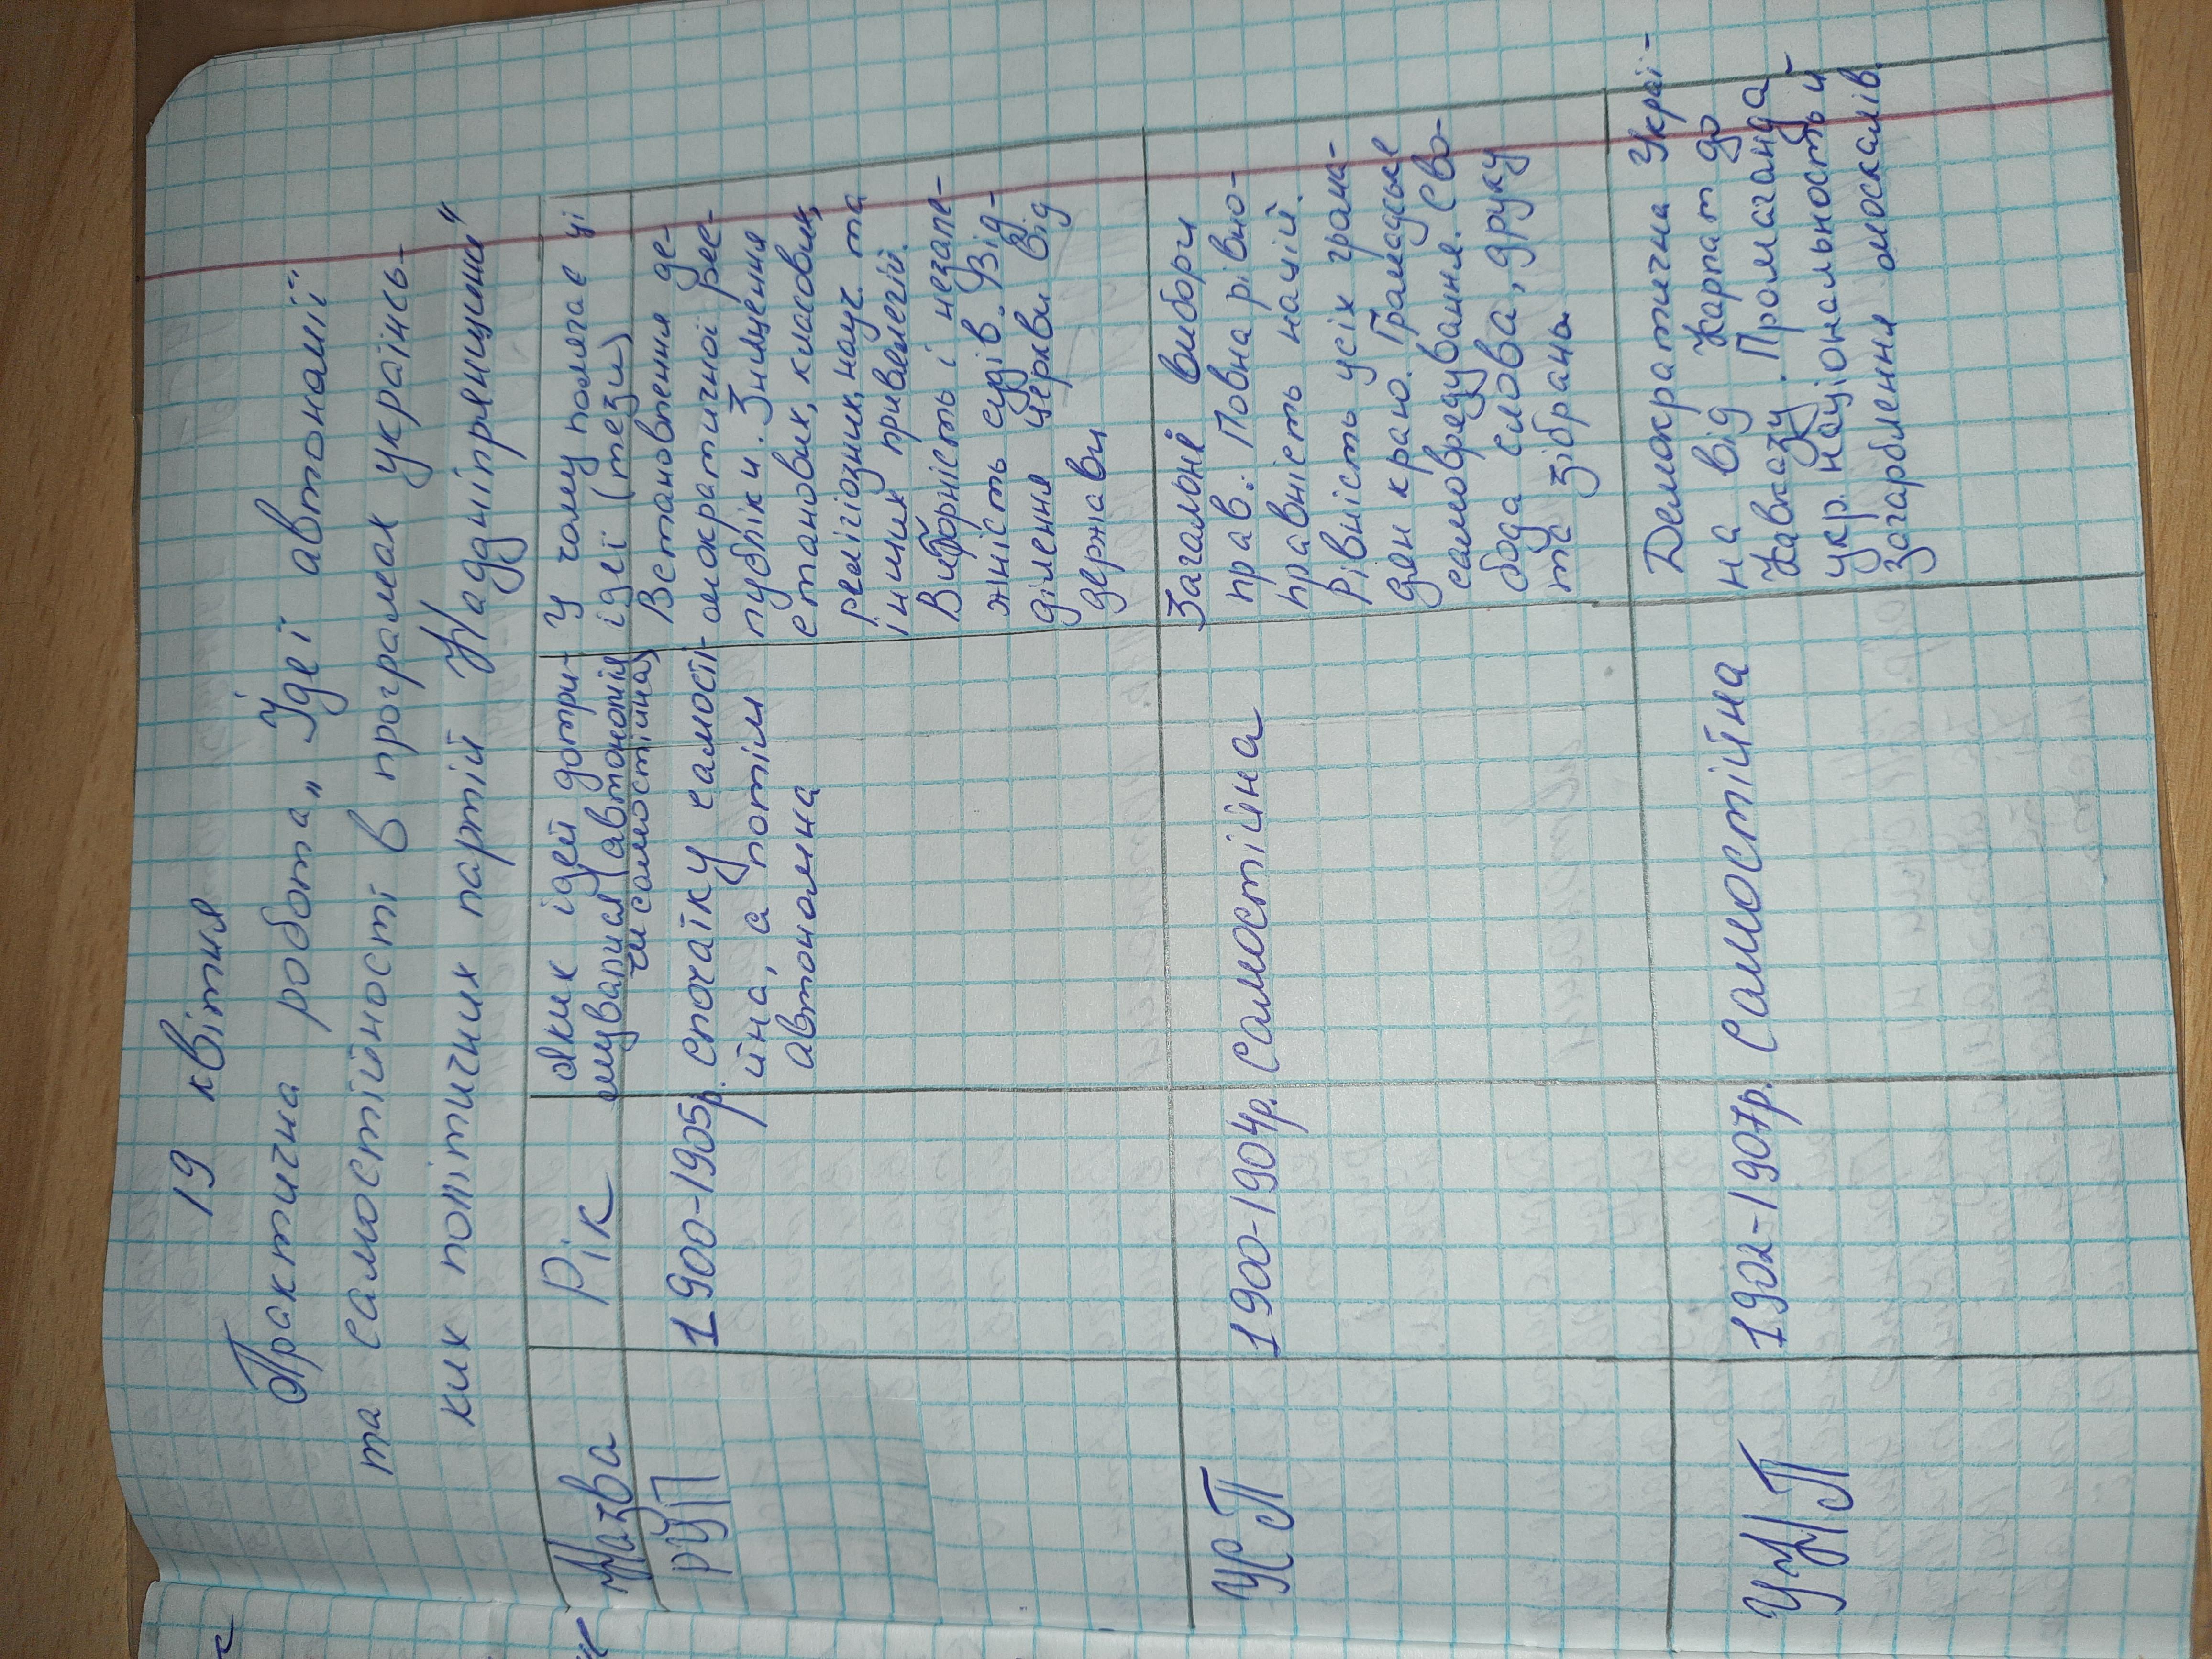 19 квітня
Практична робота „Ідеї автономії
та самостійності в програмах українсь-
ких політичних партій Наддніпрянщини"
Назва
Рік
Яких ідей дотри-
мувалися (автономія
чи самостійна)
У чому полягає ці
ідеї (тези)
РУП
1900-1905р.
Спочатку самостій-
йна, а потім
автономна
Встановлення де-
мократичної рес-
публіки. Знищення
станових, класових,
релігіозних, наук. та
інших привілегій.
Виборність і незале-
жність судів. Від-
ділення церкви від
держави
УСП
1900-1904р.
Самостійна
Загальні вибори
прав. Повна рівно-
правність націй.
Рівність усіх грома-
дян краю. Громадське
самоврядування. Сво-
бода слова, друку
та зібрань
УНП
1902-1907р.
Самостійна
Демократична Украї-
на від Карпат до
Кавказу. Пропаганда
укр. національность й
загарблення москалів.